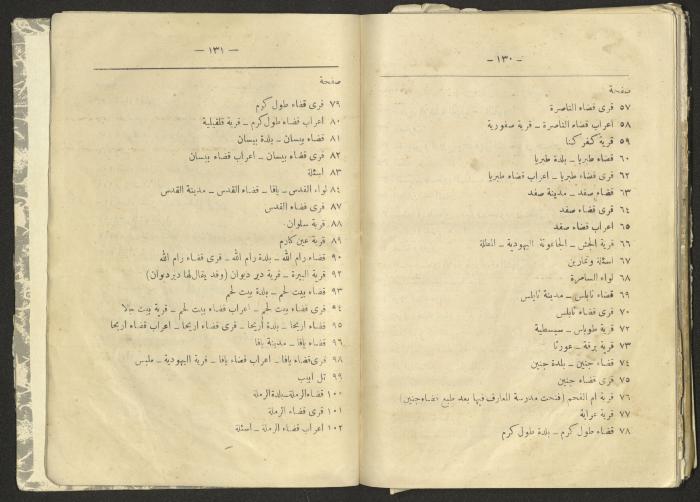 – ١٣٠ –
صفحة
٥٧ قرى قضاء الناصرة
٥٨ اعراب قضاء الناصرة – قرية صفورية
٥٩ قرية كفر كنا
٦٠ قضاء طبريا – بلدة طبريا
٦٢ قرى قضاء طبريا – اعراب قضاء طبريا
٦٣ قضاء صفد – مدينة صفد
٦٤ قرى قضاء صفد
٦٥ اعراب قضاء صفد
٦٦ قرية الجش – الجاعونة اليهودية – المطلة
٦٧ اسئلة وتمارين
٦٨ لواء السامرة
٦٩ قضاء نابلس – مدينة نابلس
٧٠ قرى قضاء نابلس
٧٢ قرية طوباس – سبسطية
٧٣ قرية برقة – عورتا
٧٤ قضاء جنين – بلدة جنين
٧٥ قرى قضاء جنين
٧٦ قرية ام الفحم (فتحت مدرسة المعارف فيها بعد طبع قضاء جنين)
٧٧ قرية عرابة
٧٨ قضاء طول كرم – بلدة طول كرم
— ١٣١ —
صفحة
٧٩ قرى قضاء طول كرم
٨٠ اعراب قضاء طول كرم – قرية قلقيلية
٨١ قضاء بيسان – بلدة بيسان
٨٢ قرى قضاء بيسان – اعراب قضاء بيسان
٨٣ اسئلة
٨٤ لواء القدس – يافا – قضاء القدس – مدينة القدس
٨٧ قرى قضاء القدس
٨٨ قرية سلوان
٨٩ قرية عين كارم
٩٠ قضاء رام الله – بلدة رام الله – قرى قضاء رام الله
٩٢ قرية البيرة – قرية دير ديوان (وقد يقال لها دير دبوان)
٩٣ قضاء بيت لحم – بلدة بيت لحم
٩٤ قرى قضاء بيت لحم – اعراب قضاء بيت لحم – قرية بيت جالا
٩٥ قضاء اريحا – بلدة أريحا – قرى قضاء اريحا – اعراب قضاء اريحا
٩٦ قضاء يافا – مدينة يافا
٩٨ قرى قضاء يافا – اعراب قضاء يافا – قرية اليهودية – ملبس
٩٩ تل ابيب
١٠٠ قضاء الرملة – بلدة الرملة
١٠١ قرى قضاء الرملة
١٠٢ اعراب قضاء الرملة – اسئلة